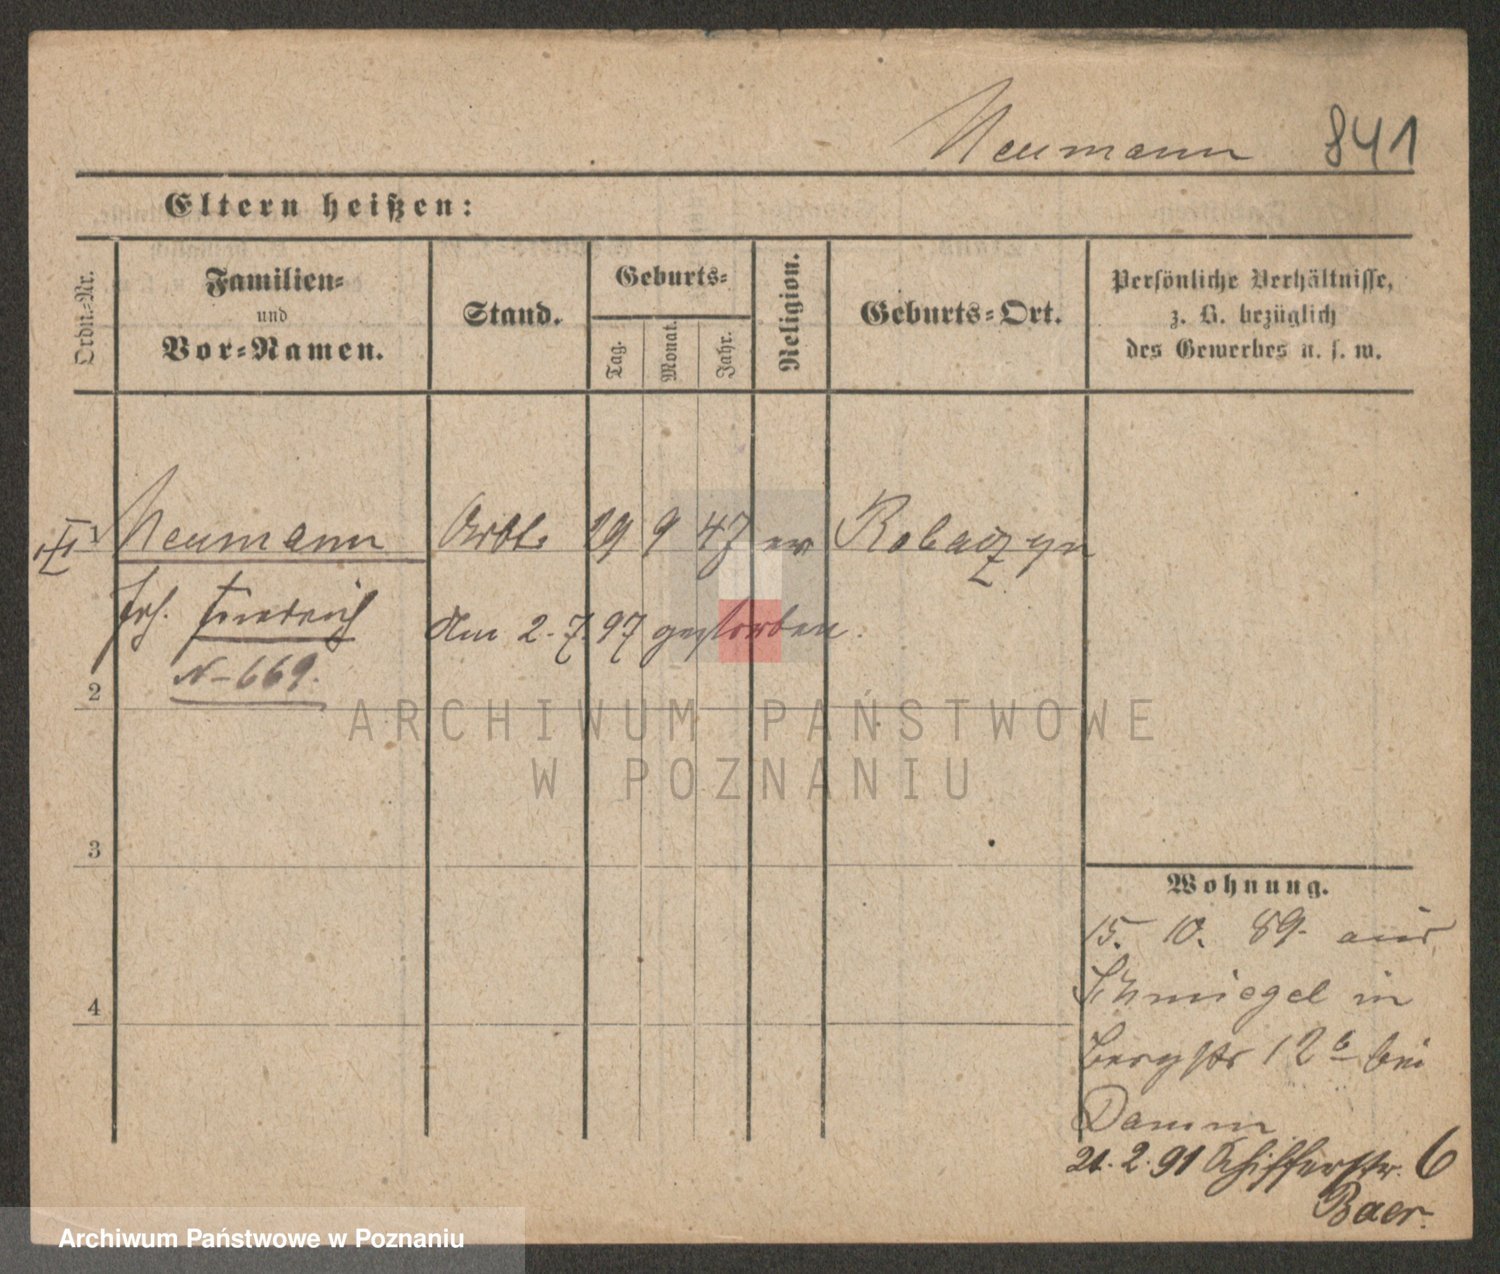 Neumann 841
Eltern heißen:
Ordn.-Nr.
Familien-
und
Vor-Namen.
Stand.
Geburts-
Tag.
Monat.
Jahr.
Religion.
Geburts-Ort.
Persönliche Verhältnisse,
z. B. bezüglich
des Gewerbes u. s. w.
1 Neumann Arbtr 19 9 47 ev Robaczyn
Joh. Friedrich am 2.7.97 gestorben.
N-669.
2
3
4
Wohnung.
15. 10. 89. aus
Schmiegel in
Bergstr 12b bei
Damm
21.2.91 Schifferstr. 6
Baer.
ARCHIWUM PAŃSTWOWE
W POZNANIU
Archiwum Państwowe w Poznaniu